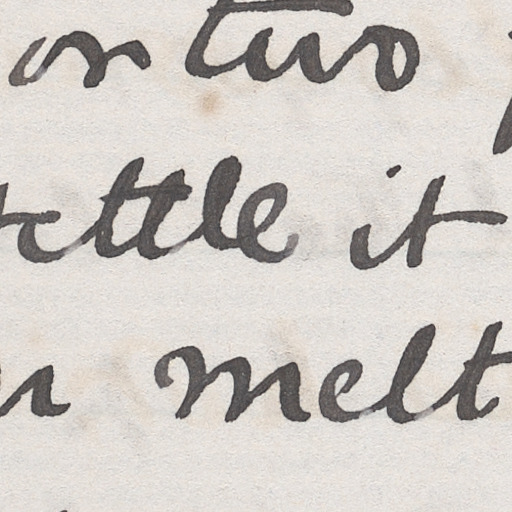 or two
ettle it
melt